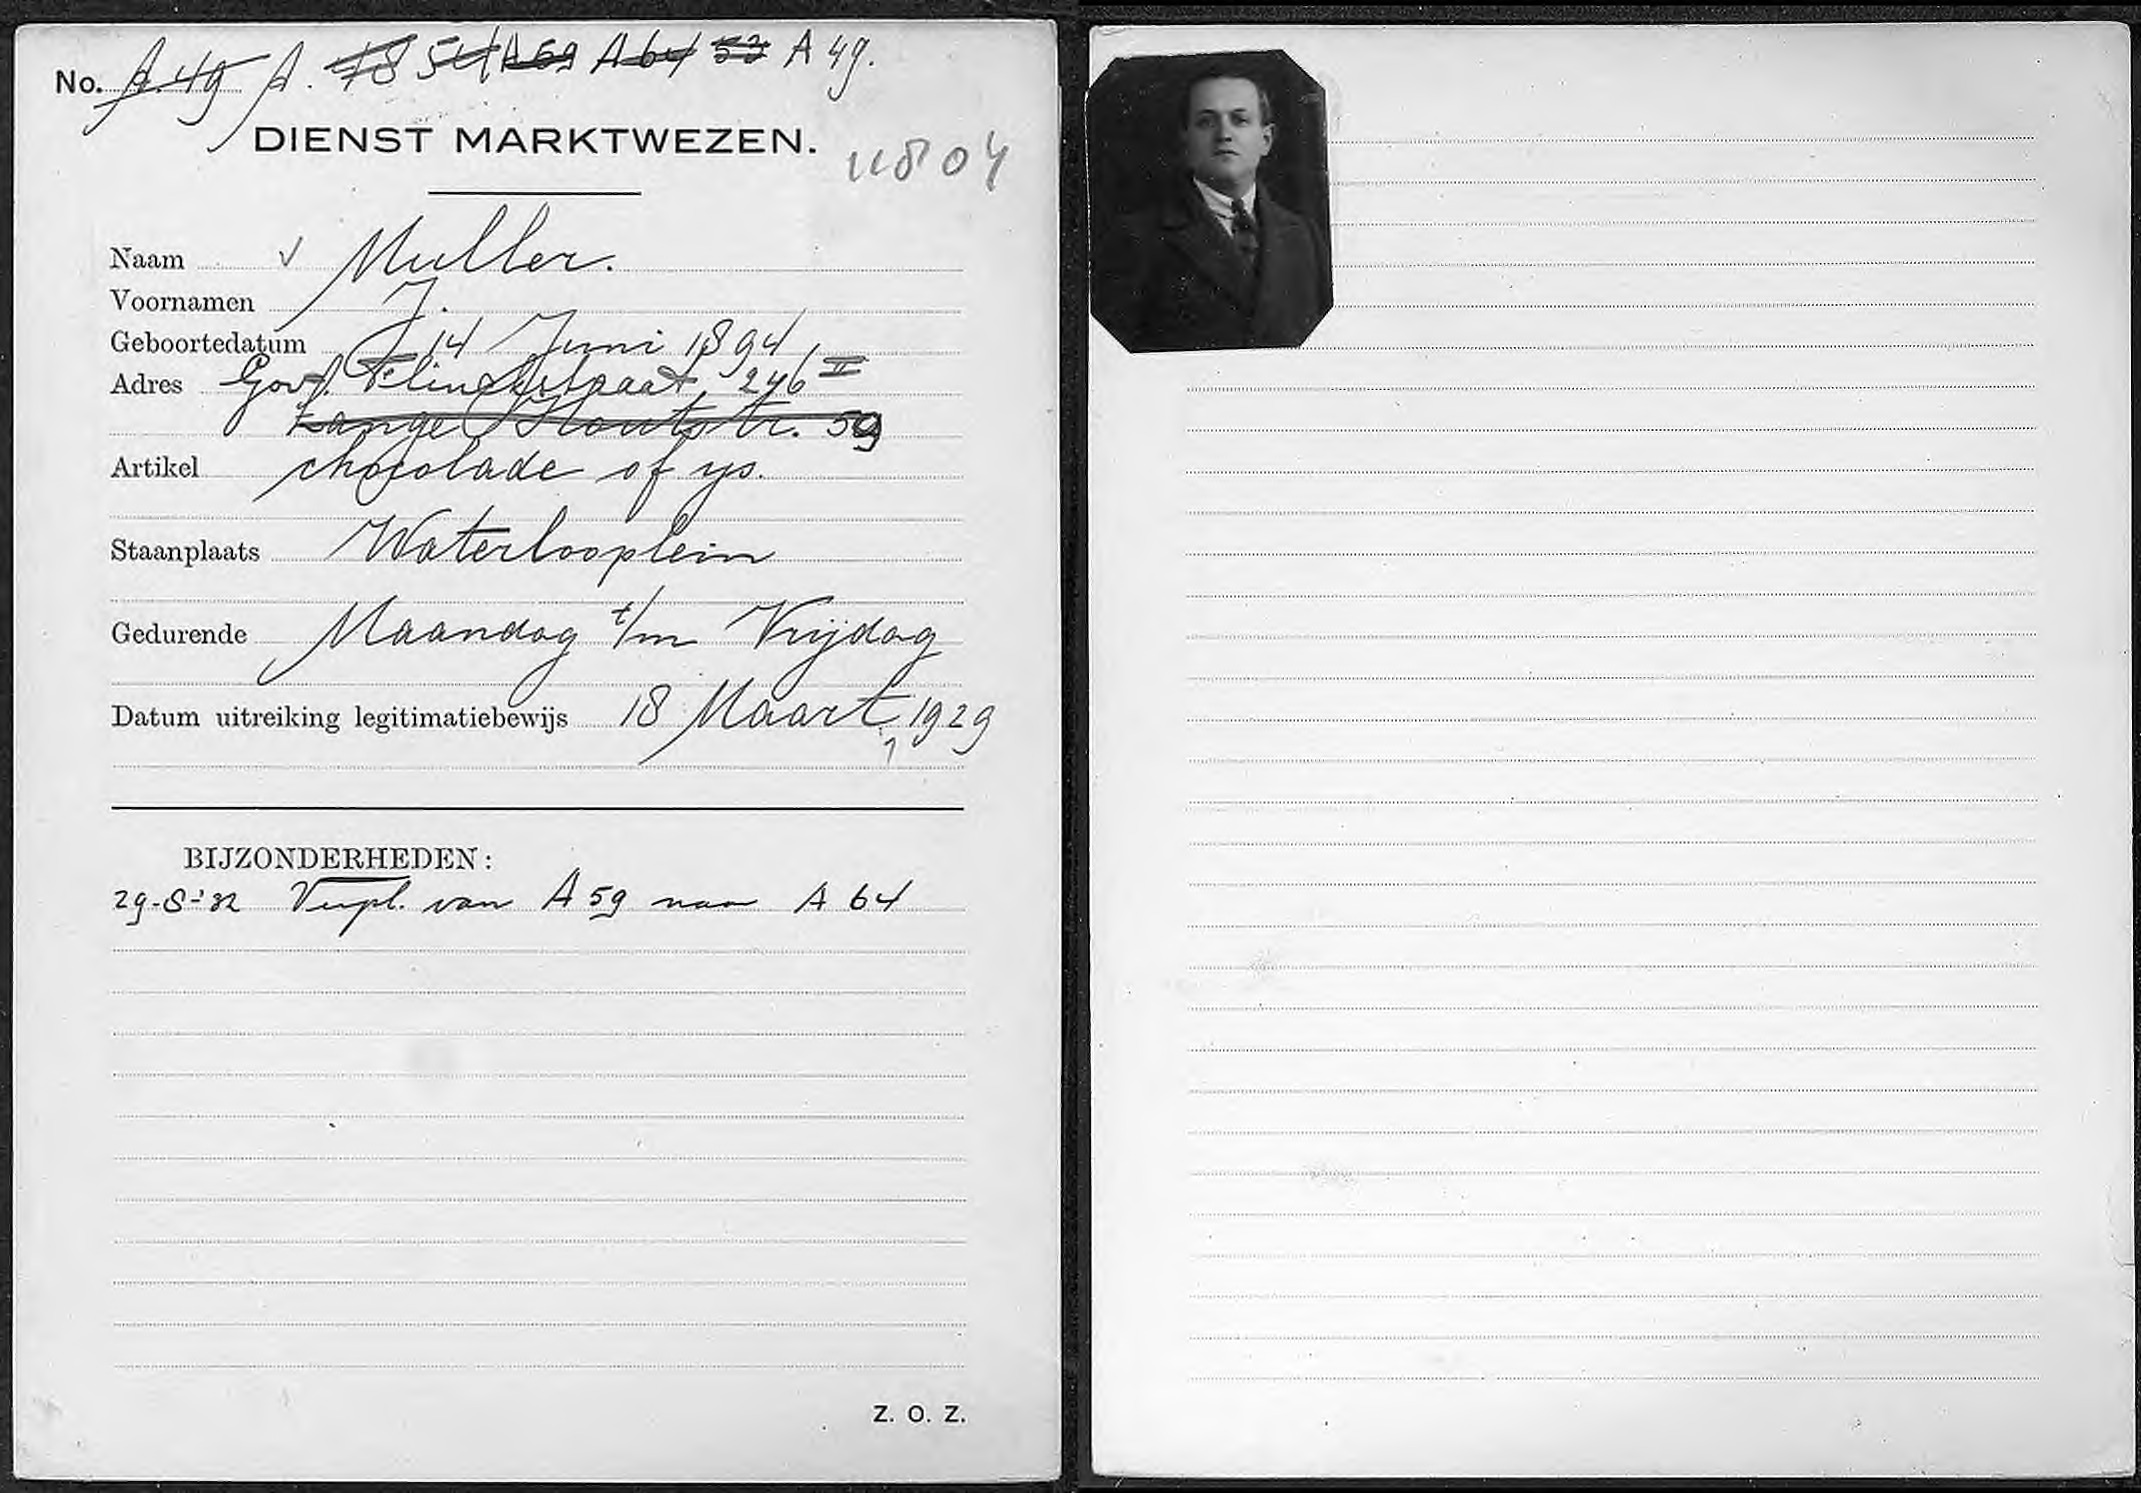 No. A. 49 A. 78 54 A 59 A 64 53 A 49.
DIENST MARKTWEZEN.
11804
Naam √ Muller.
Voornamen J.
Geboortedatum 14 Juni 1894
Adres Gov. Flinckstraat 246 II
Lange Houtstr. 59
Artikel chocolade of ijs.
Staanplaats Waterlooplein
Gedurende Maandag t/m Vrijdag
Datum uitreiking legitimatiebewijs 18 Maart 1929
BIJZONDERHEDEN:
29-8-'32 Verpl. van A 59 naar A 64
Z. O. Z.